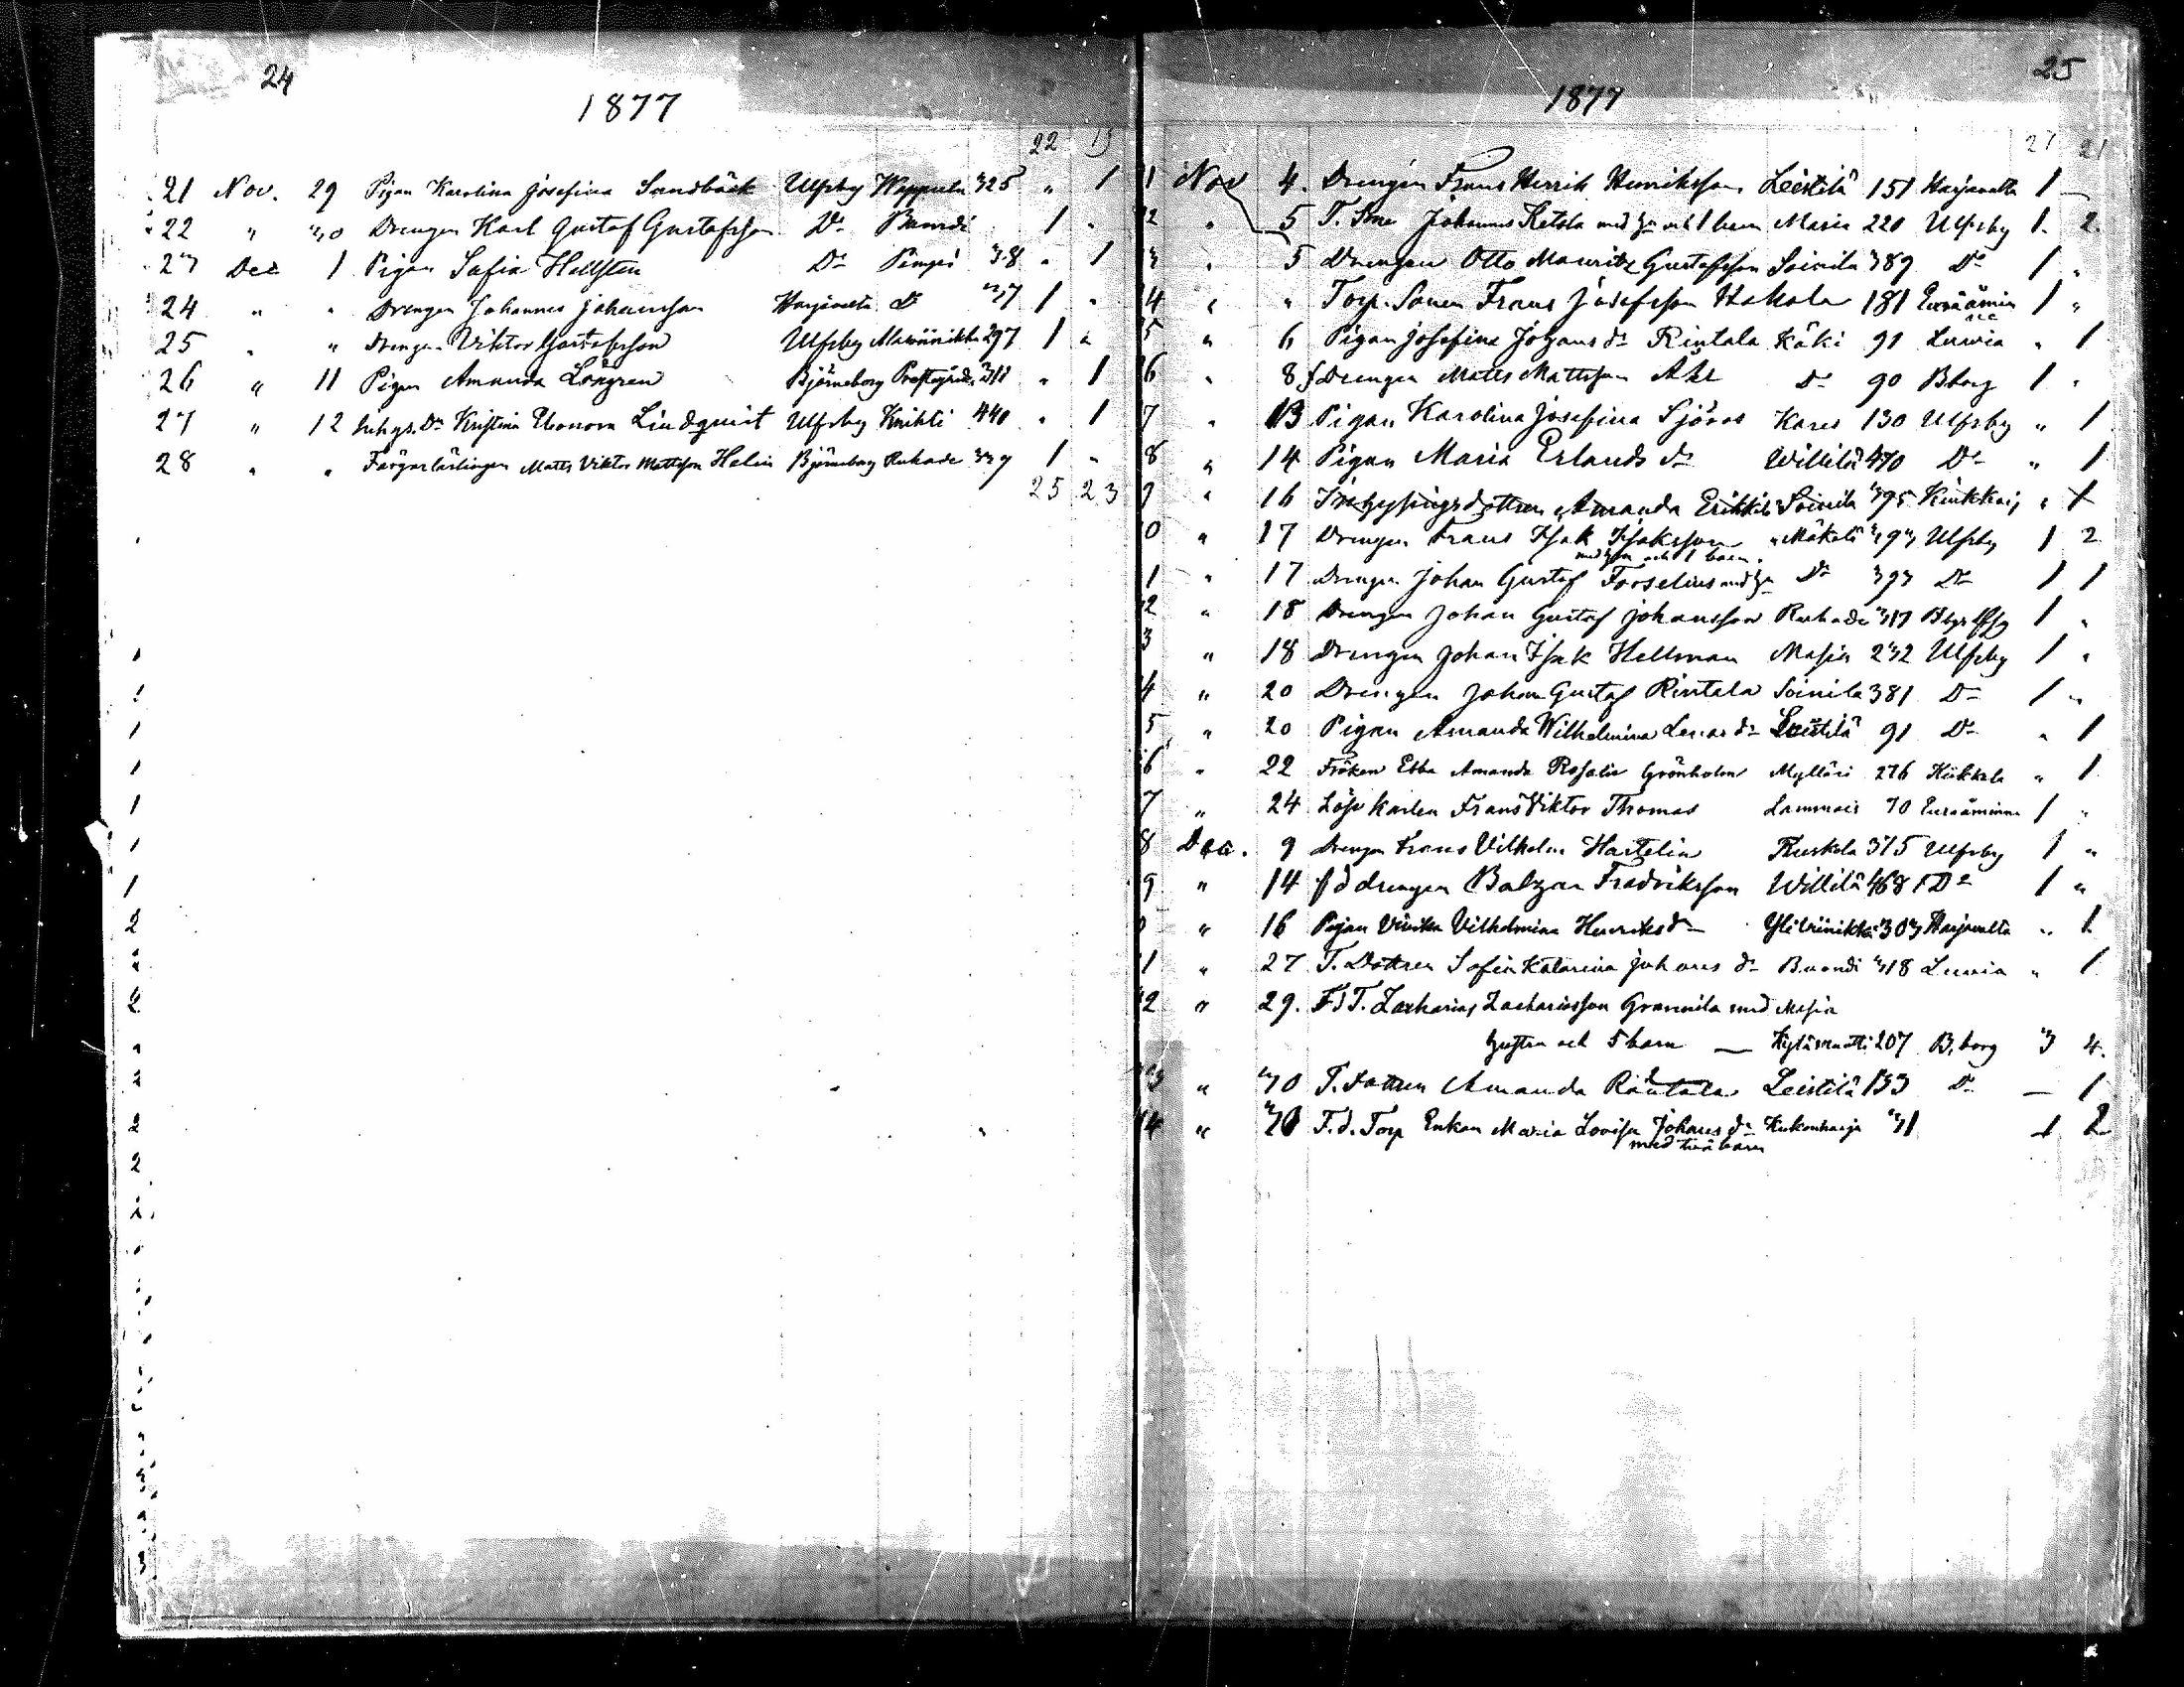 24
1877
22 19
21 Nov. 29 Pigan Karolina Josefina Sandbäck Ulfsby Wappula 325 " 1
22 " 30 Drengen Karl Gustaf Gustafsson Do Buordi 1 "
23 Dec 1 Pigan Sofia Hellsten Do Pimpi 38 " 1
24 " " Drengen Johannes Johansson Harjavalta Do 37 1 "
25 " " Drengen Viktor Gustafsson Ulfsby 297 1 "
26 " 11 Pigan Amanda Löngren Björneborg 311 " 1
27 " 12 Inhys. Dr Kristina Eleonora Lindqvist Ulfsby Knihti 440 " 1
28 " " Färgarlärlingen Matts Viktor Mattsson Helin Björneborg Ruhade 1 "
25 23
25
1877
27 21
1 Nov 4. Drengen Frans Henrik Henriksson Leistilä 151 Harjavalta 1 —
2 " 5 T. Sone Johannes Ketola med hu och 1 barn Masia 220 Ulfsby 1. 2.
3 " 5 Drengen Otto Mauritz Gustafsson Soinila 389 Do 1 "
4 " " Torp. Sonen Frans Josefsson Uskola 181 1 "
5 " 6 Pigan Josefina Johansdr Rintala Käki 91 Luvia " 1
6 " 8 Drengen Matts Mattsson Ahl Do 90 Bborg 1 "
7 " 13 Pigan Karolina Josefina Sjöros Kares 130 Ulfsby " 1
8 " 14 Pigan Maria Erlandsdr Willilä 470 Do " 1
9 " 16 Inhysingsdottren Amanda Erikkilä Soinila 395 " 1
0 " 17 Drengen Frans Isak Isaksson Mäkelä 393 Ulfsby 1 2
med hu och 1 barn.
1 " 17 Drengen Johan Gustaf Forselius med hu Do 393 Do 1 1
2 " 18 Drengen Johan Gustaf Johansson Ruhade 317 1 "
3 " 18 Drengen Johan Isak Hellman Masia 232 Ulfsby 1 "
4 " 20 Drengen Johan Gustaf Rintala Soinila 381 Do 1 "
5 " 20 Pigan Amanda Wilhelmina Lenasdr Leistilä 91 Do " 1
6 " 22 Fröken Ebba Amanda Rosalie Grönholm Mylläri 276 " 1
7 " 24 Löse Karlen Frans Viktor Thomas Lammais 70 Euraäminne 1 "
8 Dec. 9 Drengen Frans Vilhelm Hartelin Ruskela 375 Ulfsby 1 "
9 " 14 fd drengen Balzar Fredriksson Willilä 468 Do 1 "
" 16 Pigan Ulrika Vilhelmina Henriksdr 303 Harjavalta " 1
1 " 27 T. Dottren Sofia Katarina Johansdr Buordi 318 Luvia " 1
2 " 29. Fd T. Zacharias Zachariasson Grannila med Masia
hustru och 5 barn — 207 B,borg 3 4.
3 " 30 T. Dottren Amanda Rantala Leistilä 133 Do — 1
4 " 30 F.d. Torp Enkan Maria Lovisa Johansdr Kukonharja 31 1 2
med två barn